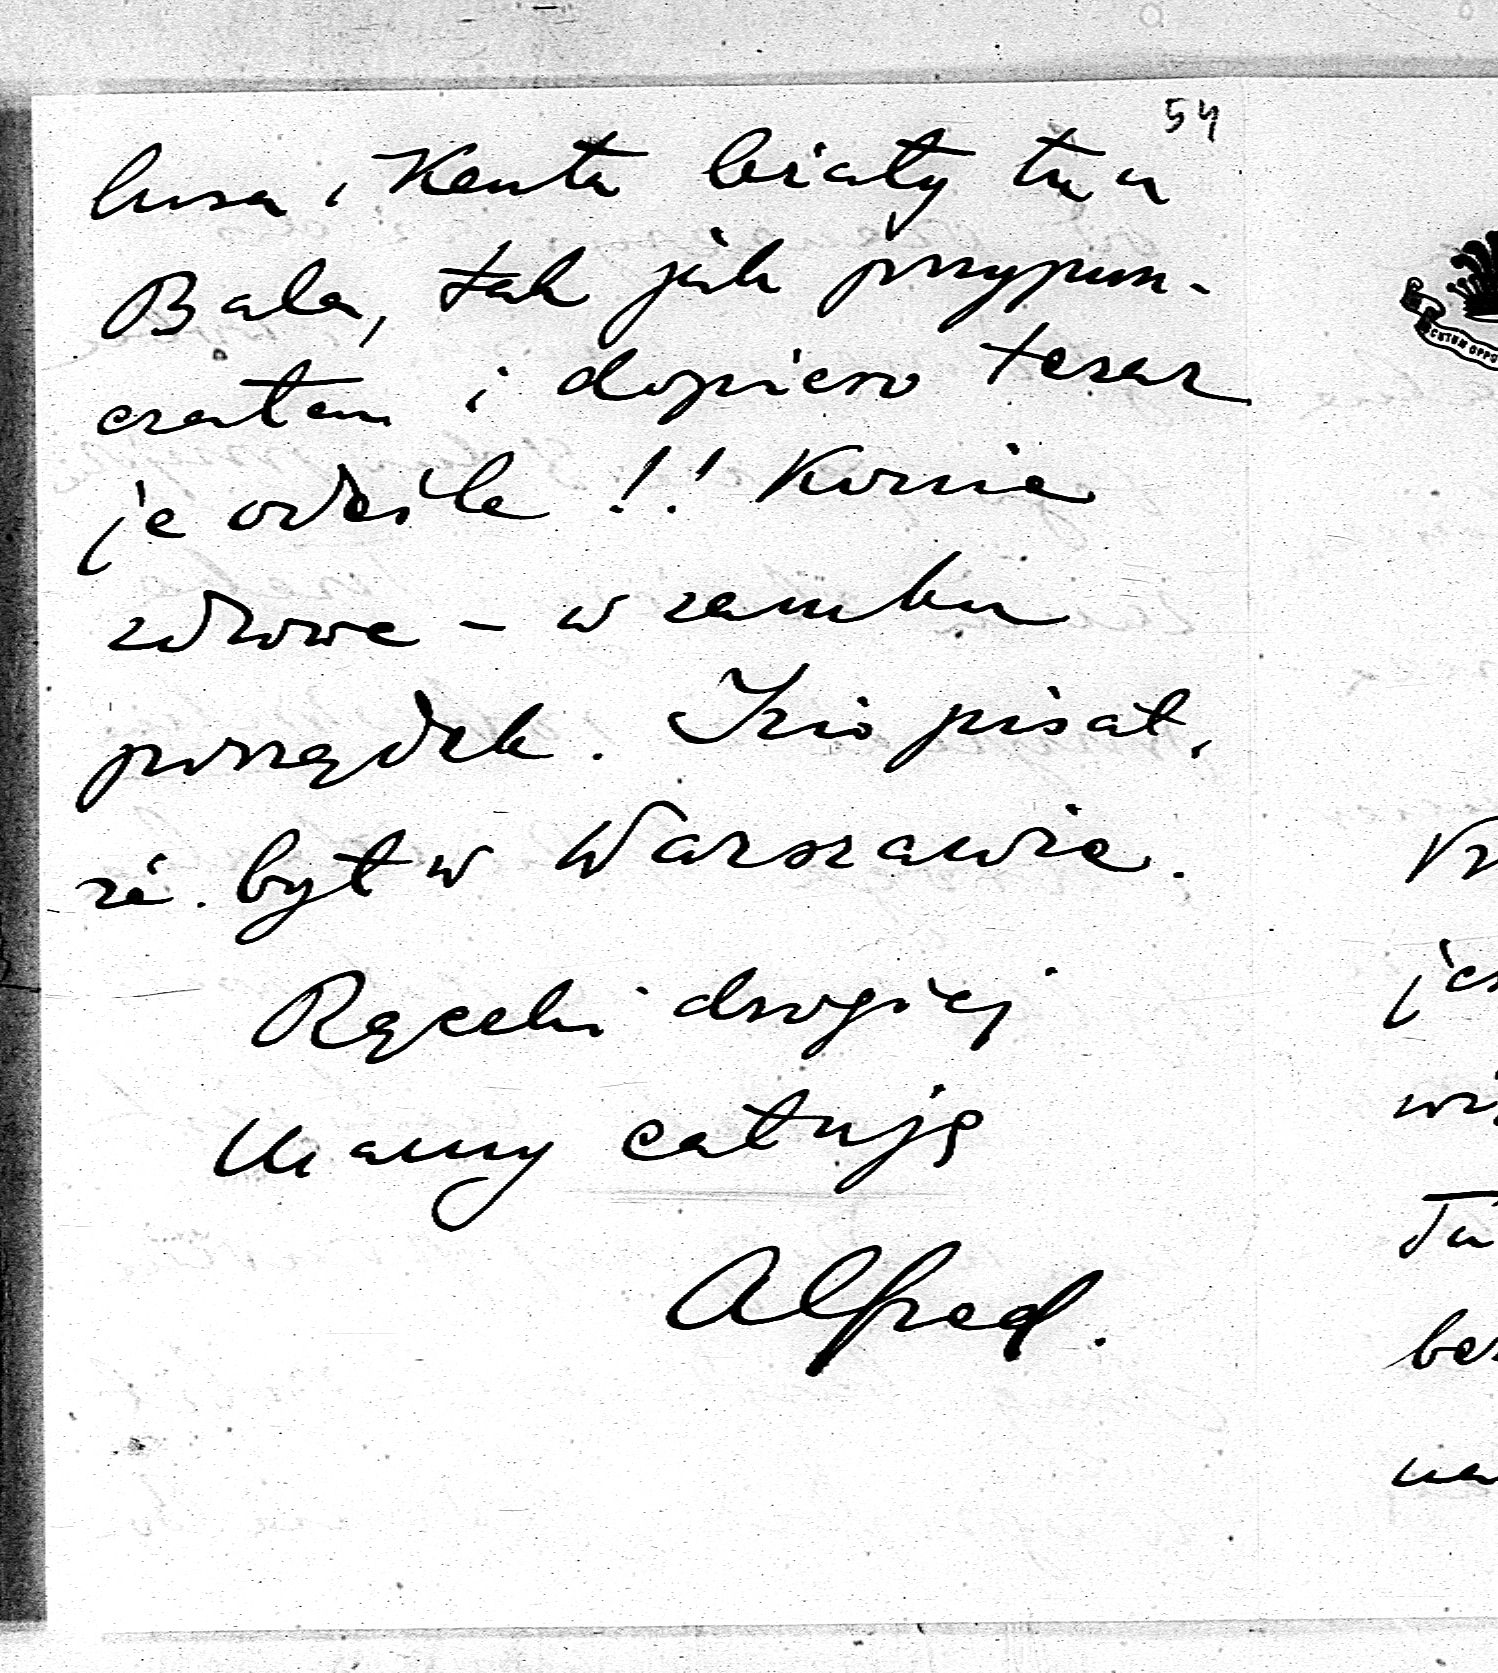 54
lusa i Kenta leżały tu u
Bala, tak jak przypusz-
czałam i dopiero teraz
je odeśle !! Konie
zdrowe – w zamku
porządek. Izio pisał,
że był w Warszawie.
Rączki drogiej
Mamy całuję
Alfred.